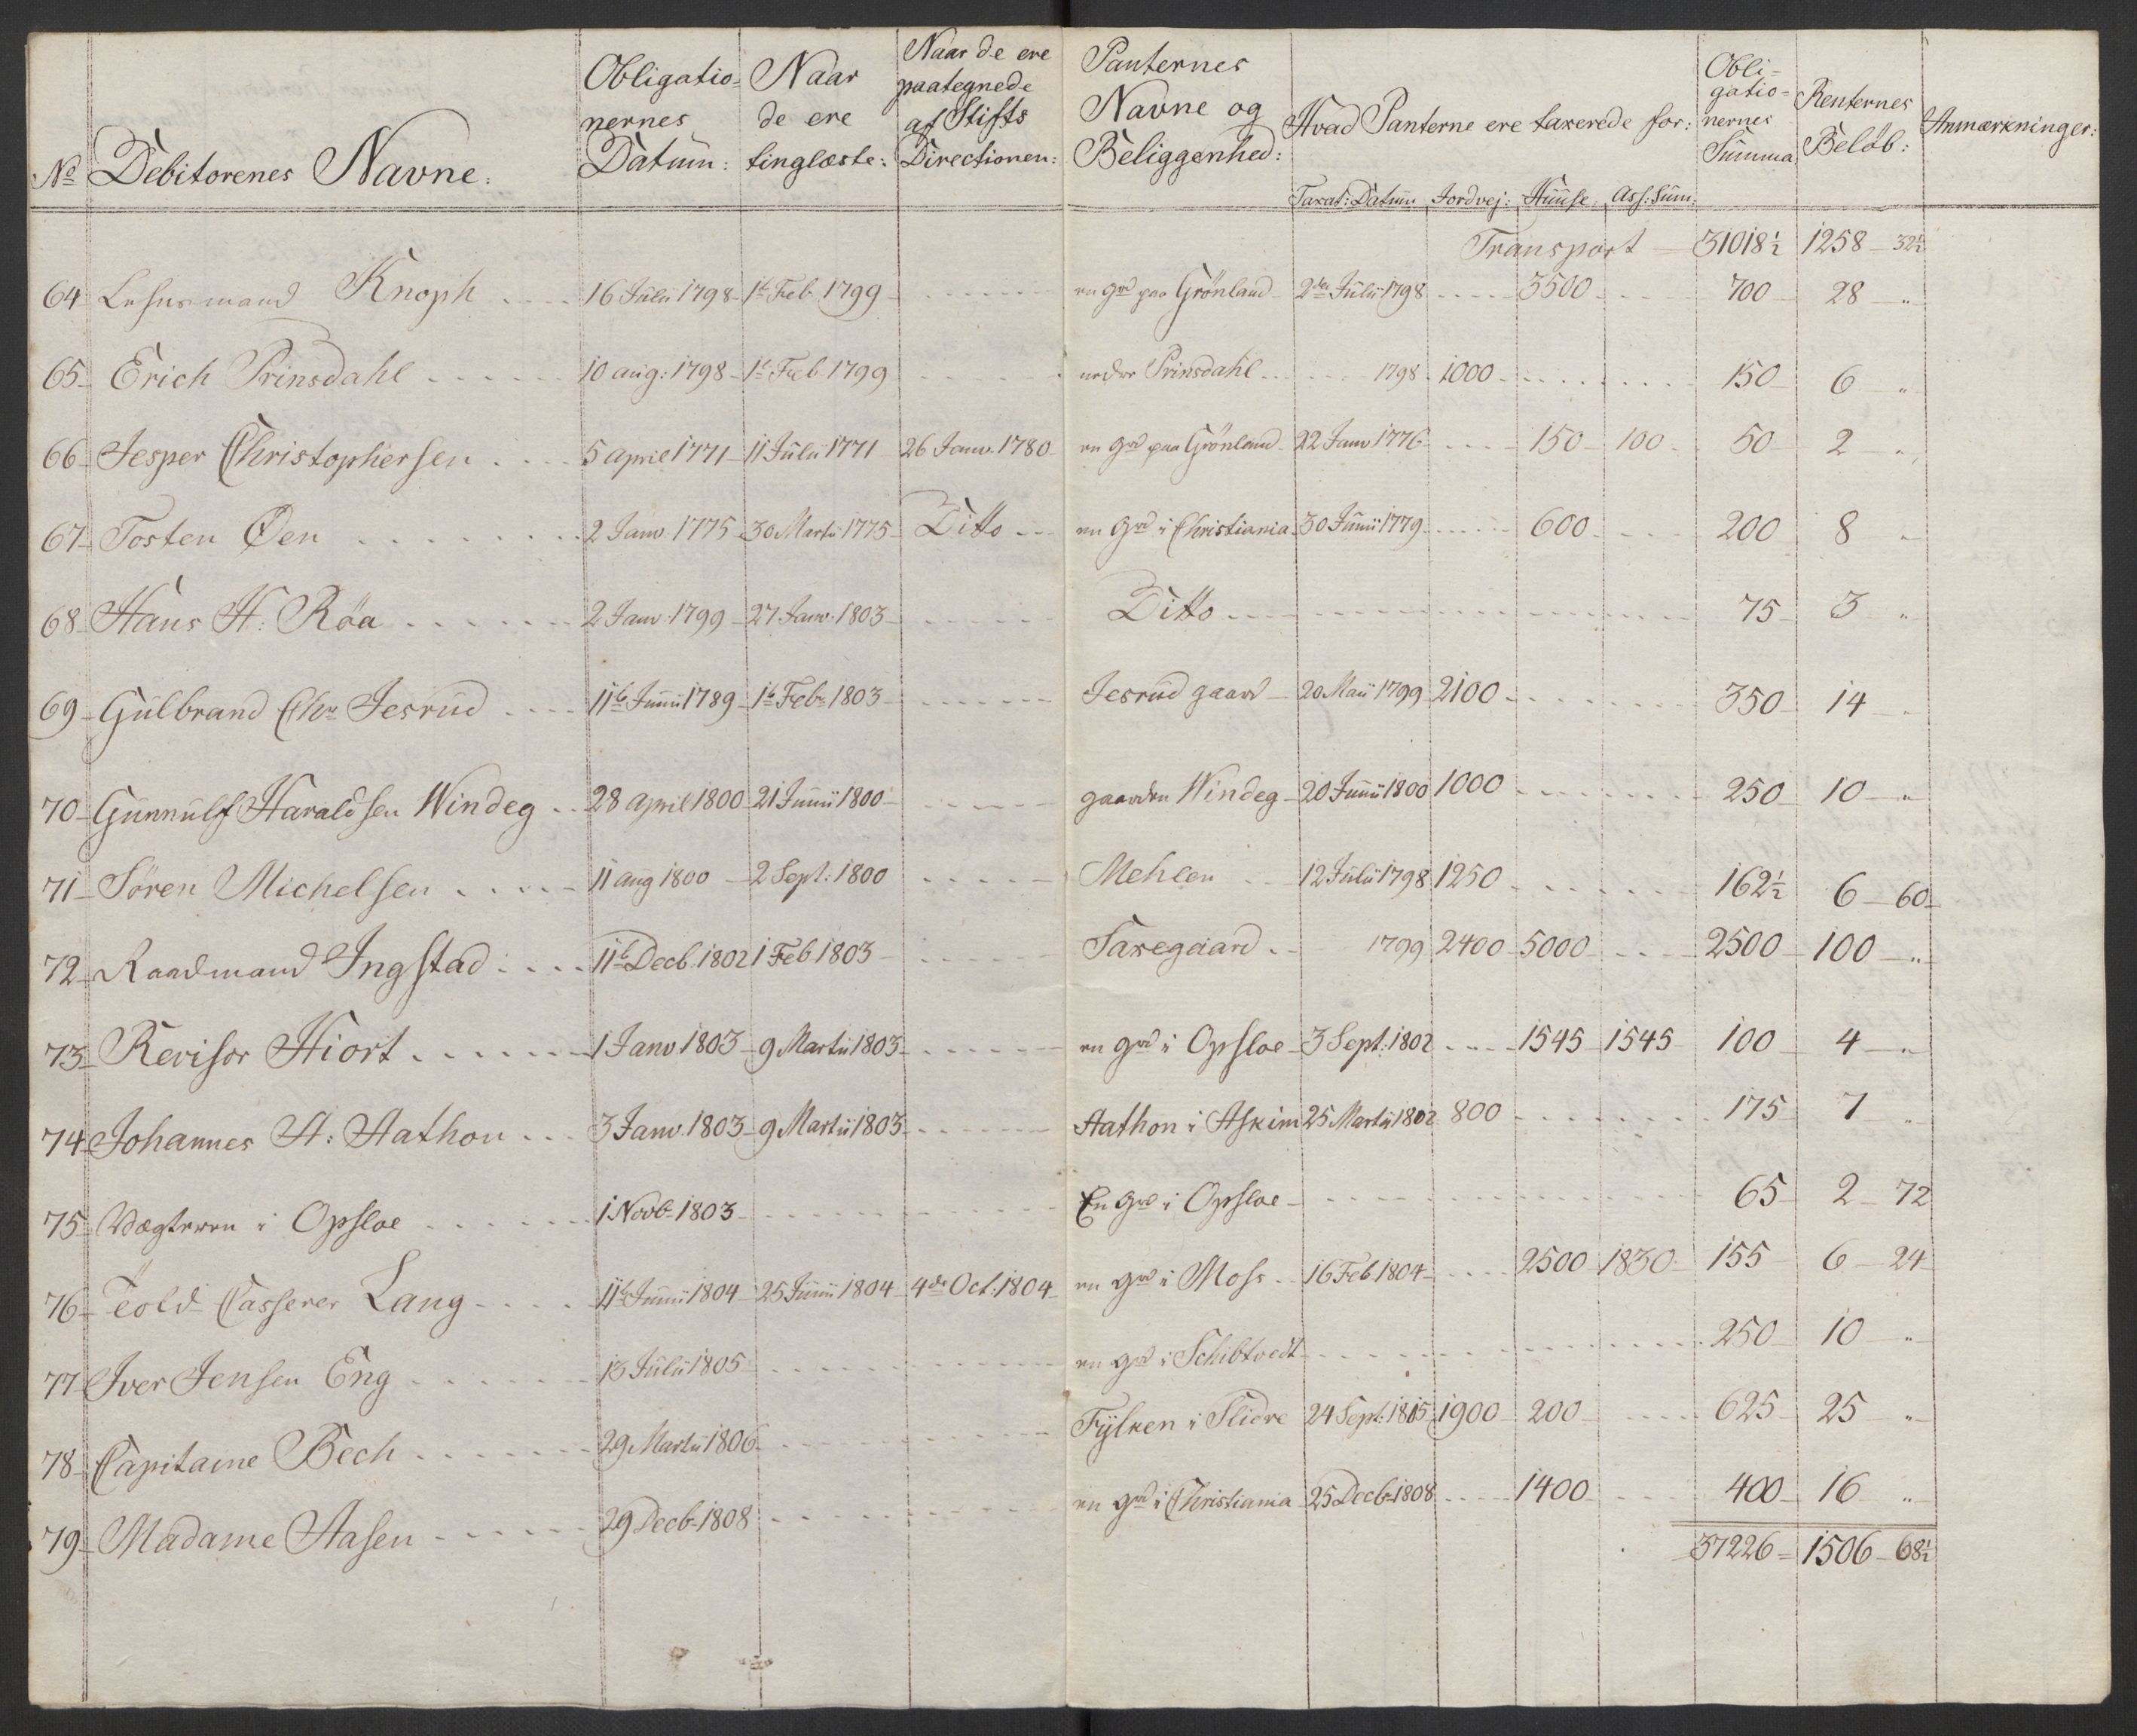 No Debitorenes Navne: Obligationernes Datum: Naar de ere tinglæste: Naar de ere paategnede af Stifts Directionen: Panternes Navne og Beliggenhed: Hvad Panterne ere taxerede for: Obligationernes Summa Renternes Beløb: Anmærkninger:
Taxat: Datum Jordvej: Huuse Ass: Sum:
Transport 31018½ 1258 - 32½
64 Lehnsmand Knoph 16 Julii 1798 1t Feb 1799 en grd paa Grönland 2den Julii 1798 3500 700 28 "
65 Erich Prinsdahl 10 aug: 1798 1t Feb 1799 nedre Prinsdahl 1798 1000 150 6 "
66 Jesper Christophersen 5 april 1771 11 Julii 1771 26 Janv. 1780 en grd paa Grönland 22 Janv 1776 150 100 50 2 "
67 Tosten Øen 2 Janv 1775 30 Martii 1775 Ditto en Grd i Christiania 30 Junii 1779 600 200 8 "
68 Hans H: Röa 2 Janv. 1799 27 Janv. 1803 Ditto 75 3 "
69 Gulbrand Chr Jesrud 11te Junii 1789 1te Feb: 1803 Jesrud gaard 20 Maii 1799 2100 350 14 "
70 Gunnulf Haraldsen Windeg 28 april 1800 21 Junii 1800 gaarden Windeg 20 Junii 1800 1000 250 10 "
71 Sören Michelsen 11 aug 1800 2 Sept: 1800 Mehlen 12 Julii 1798 1250 162½ 6 60
72 Raadmand Ingstad 11te Decb. 1802 1 Feb 1803 Saxegaard 1799 2400 5000 2500 100 "
73 Revisor Hiort 1 Janv 1803 9 Martii 1803 en grd i Opsloe 3 Sept: 1802 1545 1545 100 4 "
74 Johannes A: Aathon 3 Janv. 1803 9 Martii 1803 Aathon i Askim 25 Martii 1802 800 175 7 "
75 Vægteren i Opsloe 1 Novb 1803 En Grd i Opsloe 65 2 72
76 Told Casserer Lang 11te Junii 1804 25 Junii 1804 4de Oct: 1804 en grd i Moss 16 Feb 1804 2500 1830 155 6 24
77 Iver Jensen Eng 13 Julii 1805 en grd i Schibtvedt 250 10 "
78 Capitaine Bech 29 Martii 1806 Fylken i Slidre 24 Sept: 1805 1900 200 625 25 "
79 Madame Aasen 29 Decb 1808 en grd i Christiania 25 Decbr 1808 1400 400 16 "
37226 1506 68½